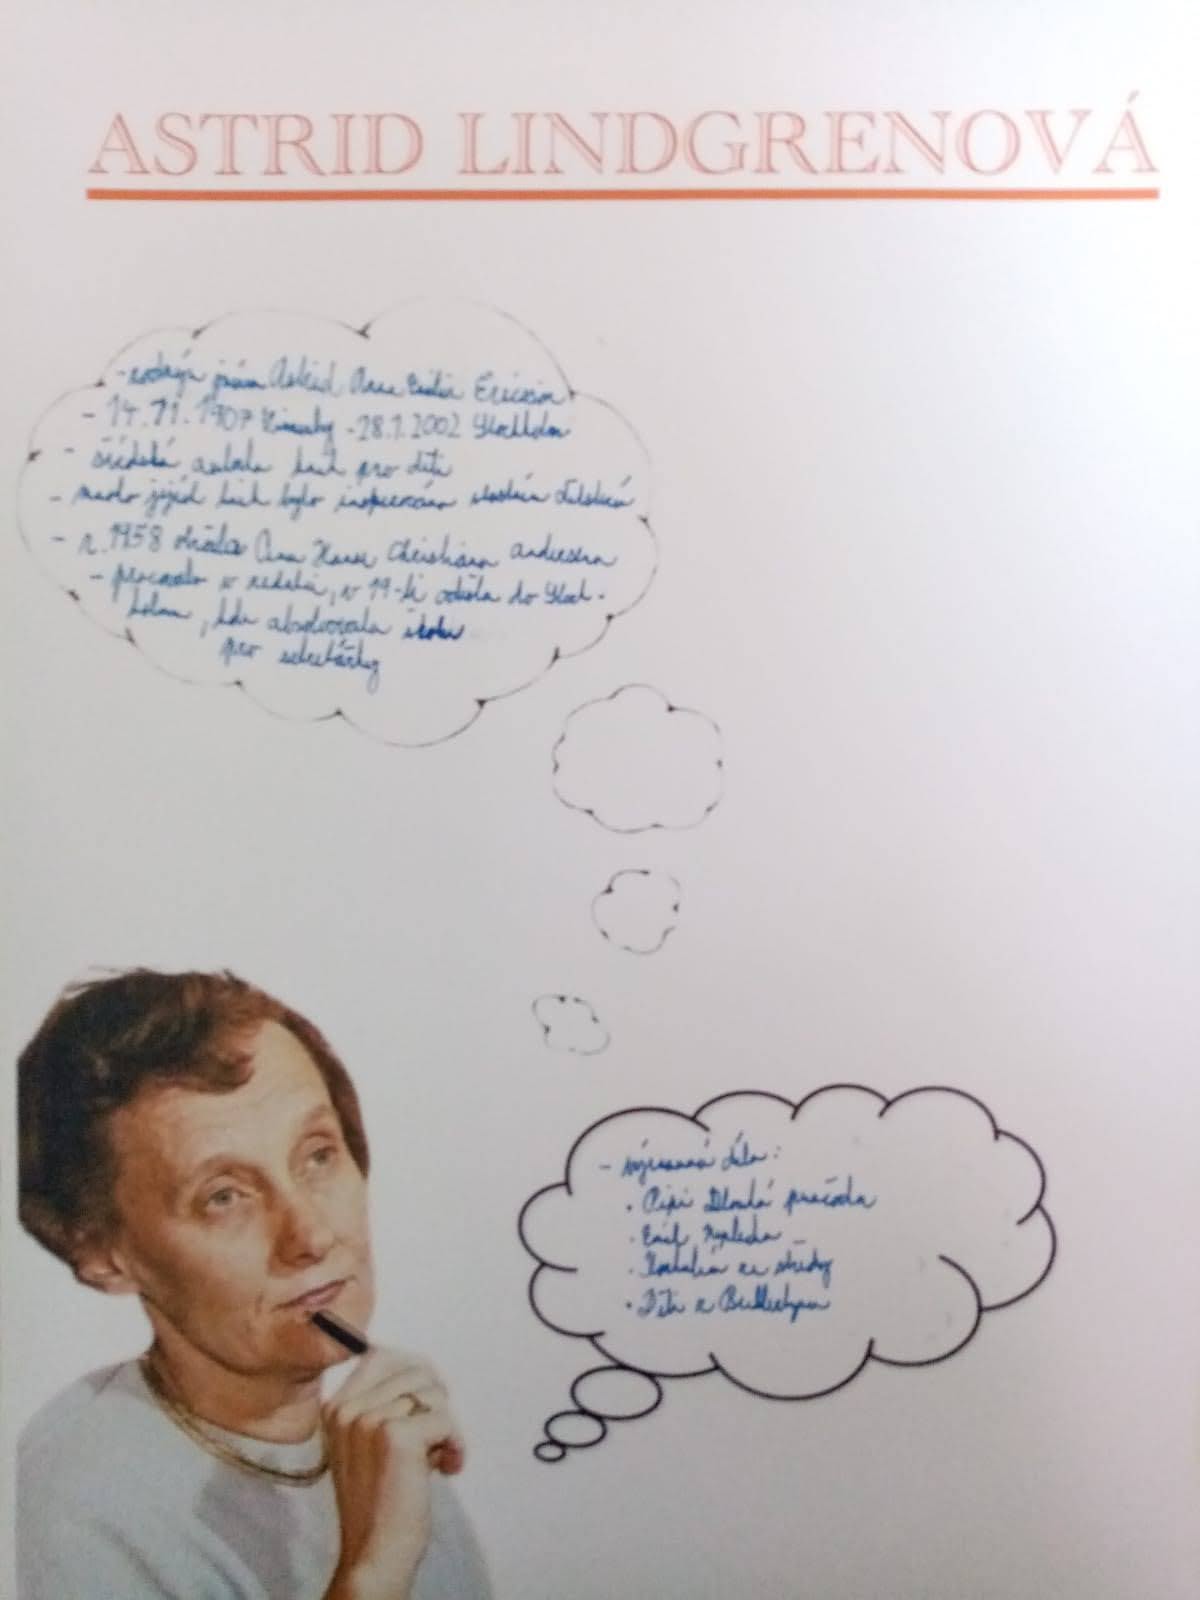 ASTRID LINDGRENOVÁ
- rodným jménem Astrid Anna Emilia Ericsson
- 14.11.1907 Vimmerby - 28.1.2002 Stockholm
- švédská autorka knih pro děti
- mnoho jejích knih bylo inspirováno vlastním dětstvím
- r. 1958 obdržela Cenu Hanse Christiana Andersena
- pracovala v redakci, v 19-ti odešla do Stock-
holmu, kde absolvovala školu
pro sekretářky
- významná díla:
• Pipi Dlouhá punčocha
• Emil
• na střeše
• Děti z Bullerbynu